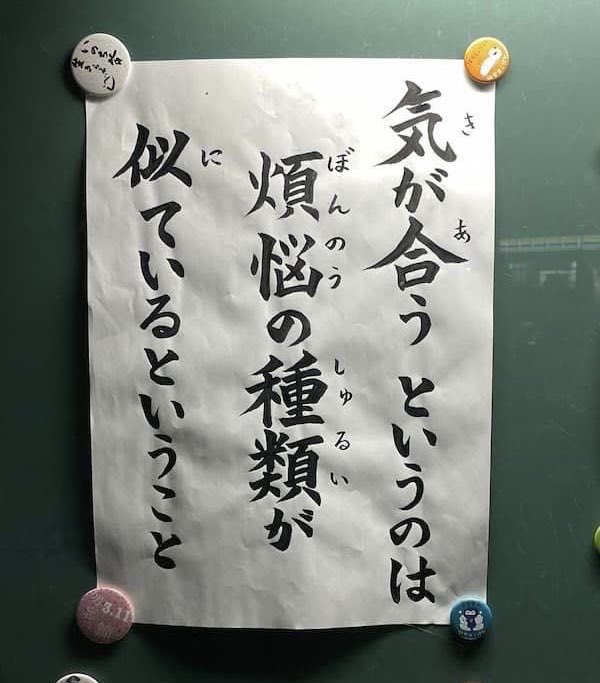 気が合う というのは
煩悩の種類が
似ているということ
き
あ
ぼんのう
しゅるい
に
3.11